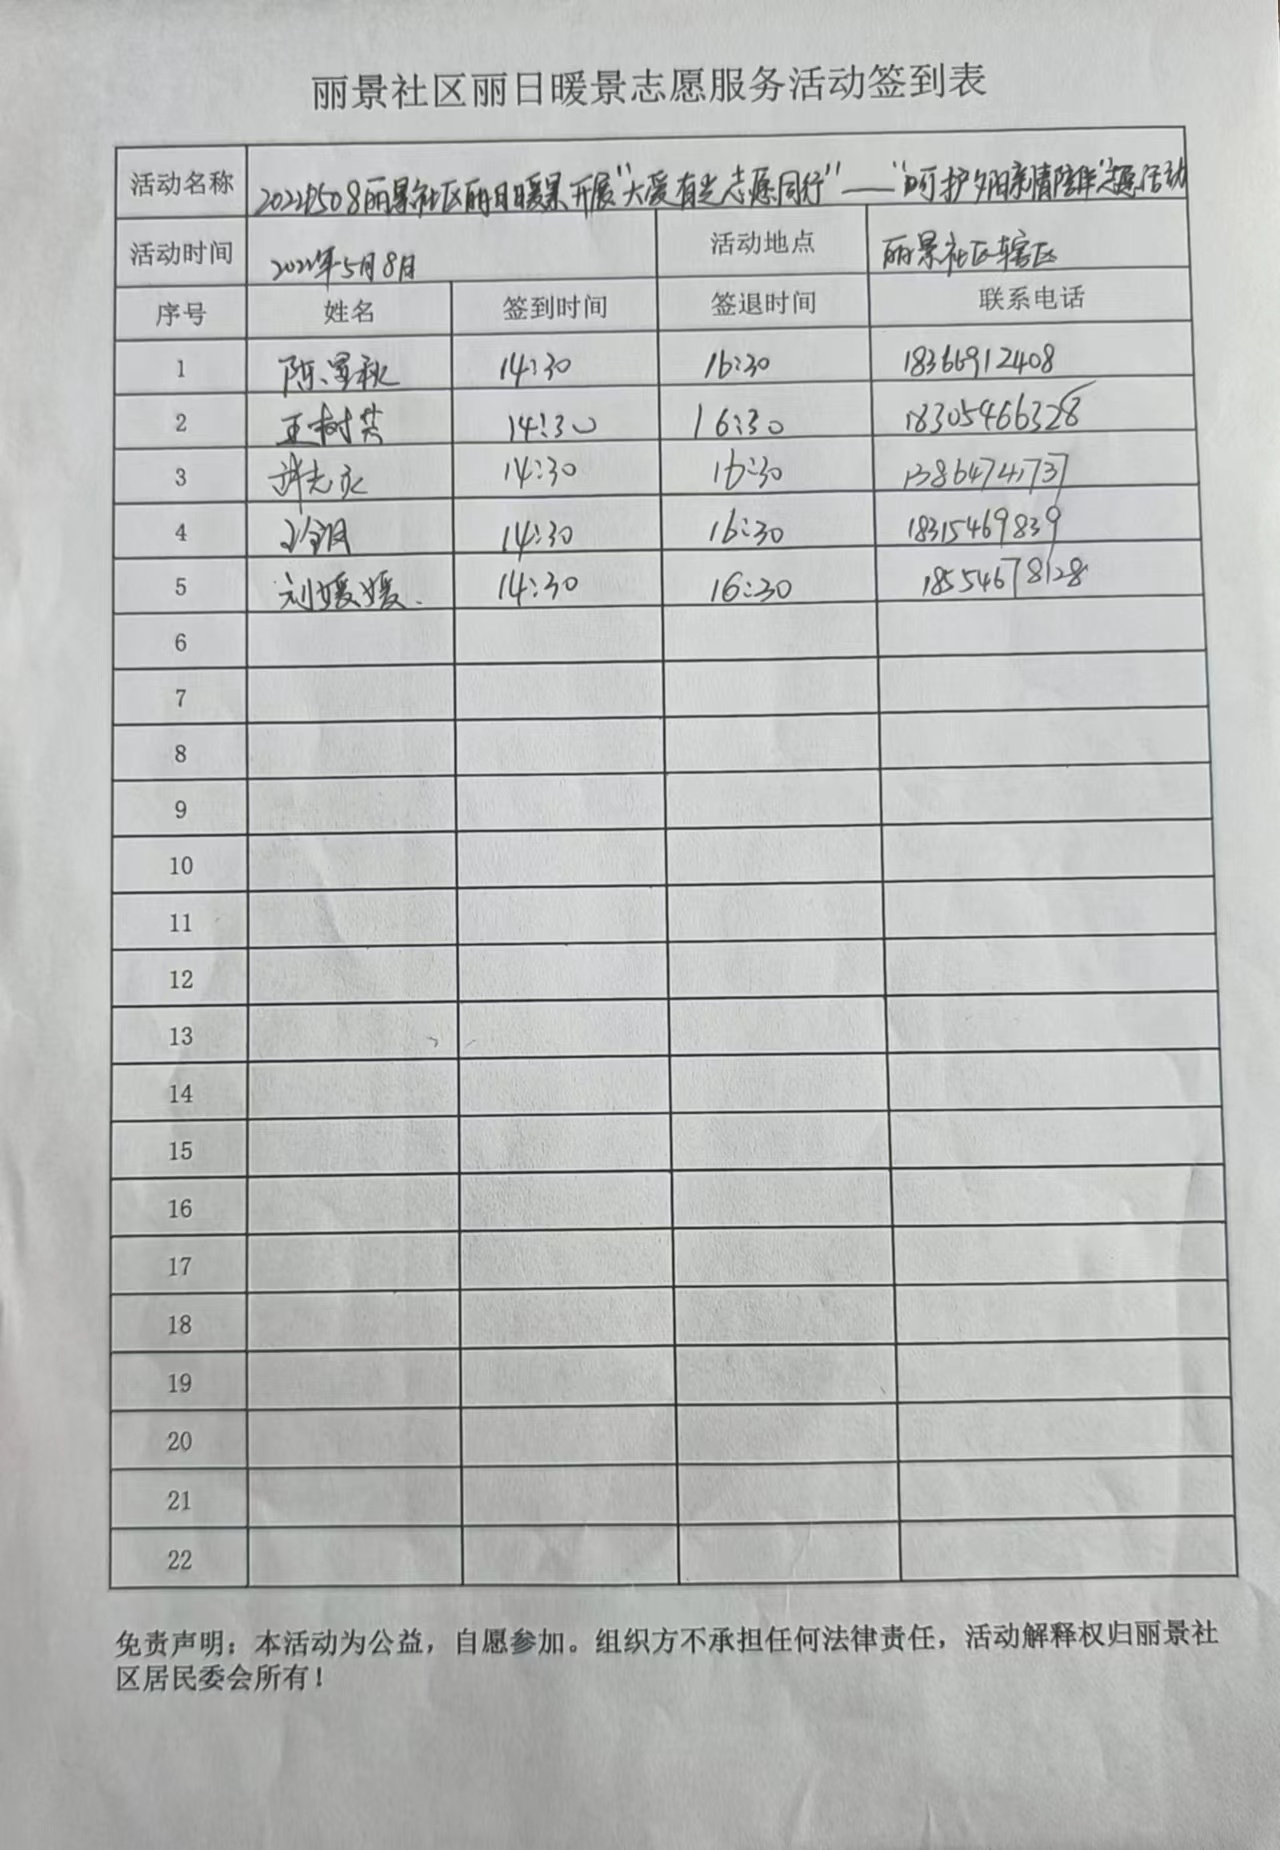 丽景社区丽日暖景志愿服务活动签到表
活动名称 20220508丽景社区丽日暖景开展"大爱有光志愿同行"——"呵护夕阳亲情陪伴"志愿活动
活动时间 2022年5月8日 活动地点 丽景社区辖区
序号 姓名 签到时间 签退时间 联系电话
1 陈景秋 14:30 16:30 18366912408
2 王树芸 14:30 16:30 18305466328
3 14:30 16:30
4 14:30 16:30 18315469839
5 刘媛媛. 14:30 16:30 18554678128
6
7
8
9
10
11
12
13
14
15
16
17
18
19
20
21
22
免责声明：本活动为公益，自愿参加。组织方不承担任何法律责任，活动解释权归丽景社
区居民委会所有！